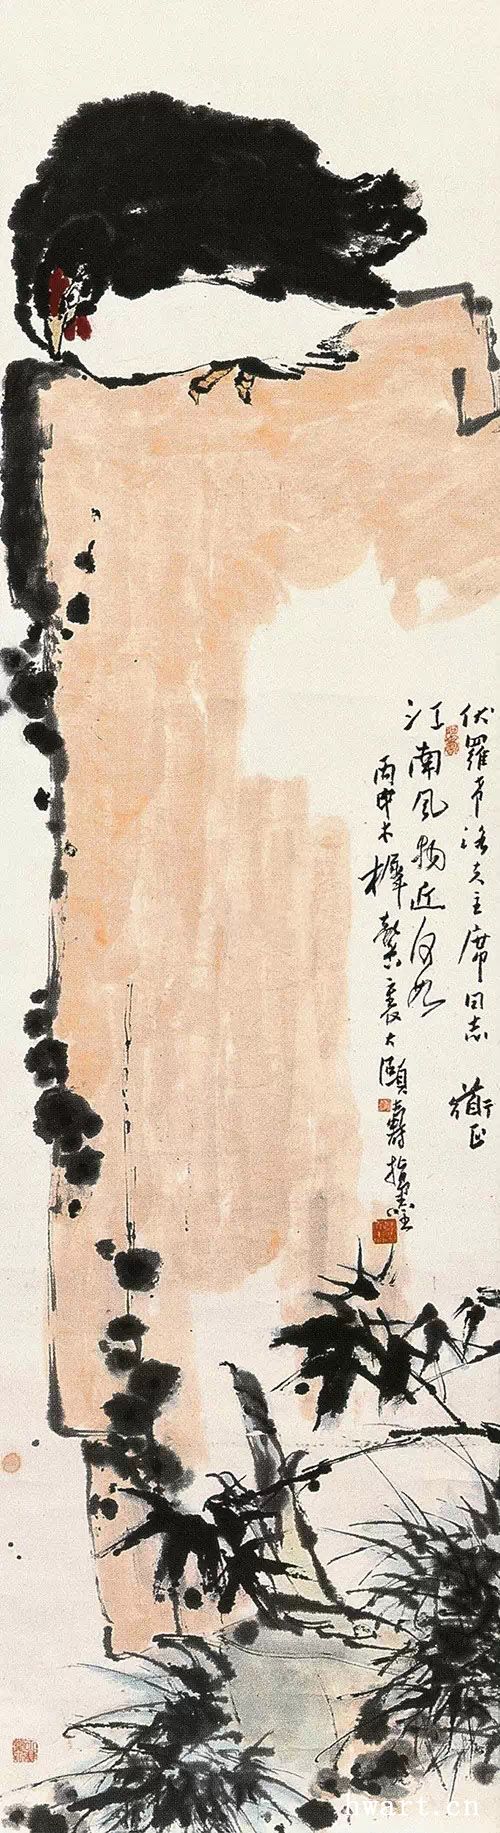 伏羅希洛夫主席同志 正
江南風物近何如
丙申木樨馨裏大頤壽指墨
hwart.cn